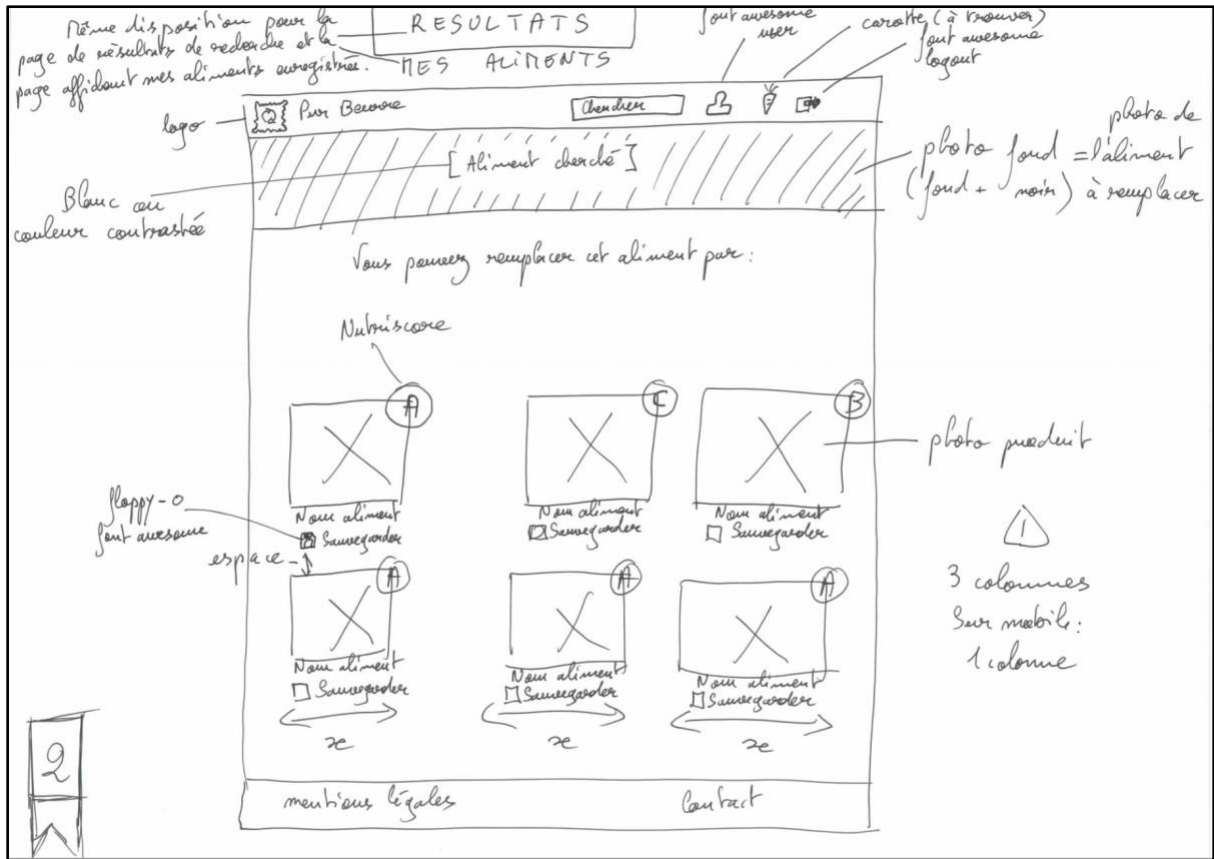 Même disposition pour la
page de résultats de recherche et la
page affichant mes aliments enregistrés.
RESULTATS
MES ALIMENTS
font awesome
user
carotte (à trouver)
font awesome
logout
logo
Pur Beurre
Chercher
[Aliment cherché]
Blanc ou
couleur contrastée
photo fond = photo de l'aliment
(fond + noir) à remplacer
Vous pouvez remplacer cet aliment par :
Nutriscore
A
C
B
photo produit
Nom aliment
Sauvegarder
Nom aliment
Sauvegarder
Nom aliment
Sauvegarder
floppy-o
font awesome
espace
A
A
A
Nom aliment
Sauvegarder
Nom aliment
Sauvegarder
Nom aliment
Sauvegarder
x
x
x
!
3 colonnes
Sur mobile :
1 colonne
2
mentions légales
Contact